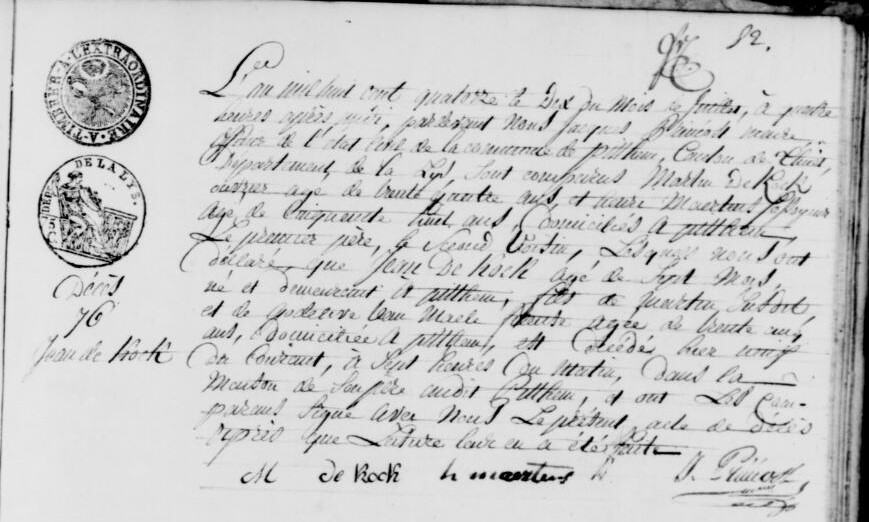 82.
A TIMBRER A L'EXTRAORDINAIRE
DE LA LYS.
Décès
76
Jean de Kock
L'an mil huit cent quatorze le Dix du mois de Juillet, à quatre
heures après midi, pardevant nous Jacques maire
officier de l'état civil de la commune de pitthem, Canton de Thielt,
Département de la Lys, sont comparus Martin De Kock
ouvrier agé de trente quatre ans, et maertens
agé de Cinquante huit ans, Domiciliés à pitthem,
Le premier père, le second Voisin, Lesquels nous ont
déclaré que Jean De Kock agé de Sept Mois,
né et demeurant à pitthem, fils de martin susdit
et de godelive Van Maele agée de trente cinq
ans, Domiciliée à pitthem, est décédé hier neuf
du Courant, à Sept heures du matin, dans la
Maison de Son père audit Pitthem, et ont Les Com-
parans Signé avec Nous Le présent acte de décès
après que Lecture leur en a été faite
M de Kock maertens J.